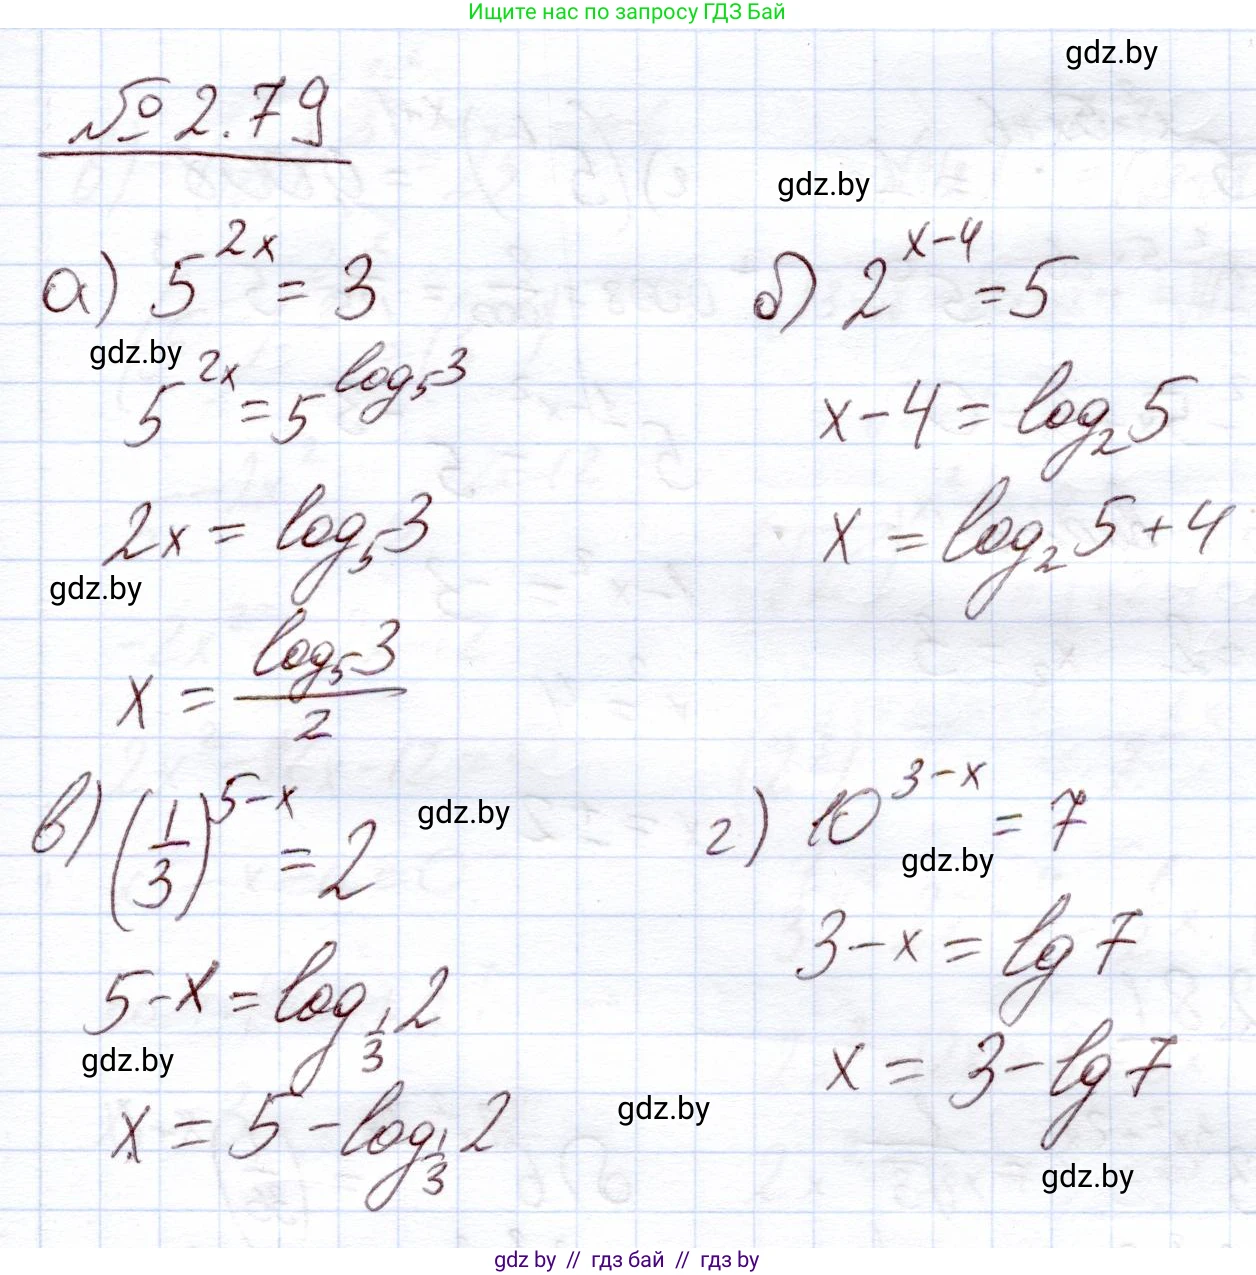 Ищите нас по запросу ГДЗ Бай
gdz.by
№ 2.79
gdz.by
а) 5^{2x} = 3
gdz.by
5^{2x} = 5^{log_5 3}
2x = log_5 3
gdz.by
x = \frac{log_5 3}{2}
б) 2^{x-4} = 5
x - 4 = log_2 5
x = log_2 5 + 4
в) (\frac{1}{3})^{5-x} = 2
gdz.by
5 - x = log_{\frac{1}{3}} 2
gdz.by
x = 5 - log_{\frac{1}{3}} 2
г) 10^{3-x} = 7
gdz.by
3 - x = lg 7
x = 3 - lg 7
gdz.by
gdz.by
gdz by // гдз бай // гдз by